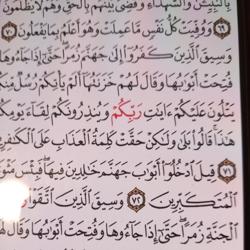 بِالنَّبِيِّـۧنَ وَالشُّهَدَآءِ وَقُضِيَ بَيْنَهُم بِالْحَقِّ وَهُمْ لَا يُظْلَمُونَ
﴿٦٩﴾ وَوُفِّيَتْ كُلُّ نَفْسٍ مَّا عَمِلَتْ وَهُوَ أَعْلَمُ بِمَا يَفْعَلُونَ ﴿٧٠﴾
وَسِيقَ الَّذِينَ كَفَرُوٓا۟ إِلَىٰ جَهَنَّمَ زُمَرًا ۖ حَتَّىٰٓ إِذَا جَآءُوهَا
فُتِحَتْ أَبْوَٰبُهَا وَقَالَ لَهُمْ خَزَنَتُهَآ أَلَمْ يَأْتِكُمْ رُسُلٌ مِّنكُمْ
يَتْلُونَ عَلَيْكُمْ ءَايَٰتِ رَبِّكُمْ وَيُنذِرُونَكُمْ لِقَآءَ يَوْمِكُمْ
هَٰذَا ۚ قَالُوا۟ بَلَىٰ وَلَٰكِنْ حَقَّتْ كَلِمَةُ الْعَذَابِ عَلَى الْكَٰفِرِينَ
﴿٧١﴾ قِيلَ ادْخُلُوٓا۟ أَبْوَٰبَ جَهَنَّمَ خَٰلِدِينَ فِيهَا ۖ فَبِئْسَ مَثْوَى
الْمُتَكَبِّرِينَ ﴿٧٢﴾ وَسِيقَ الَّذِينَ اتَّقَوْا۟ رَبَّهُمْ إِلَى
الْجَنَّةِ زُمَرًا ۖ حَتَّىٰٓ إِذَا جَآءُوهَا وَفُتِحَتْ أَبْوَٰبُهَا وَقَالَ لَهُمْ